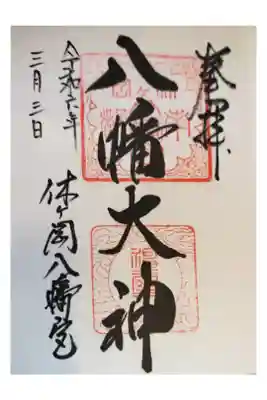 奉拝
八幡大神
休ヶ岡八幡宮
令和六年
三月三日